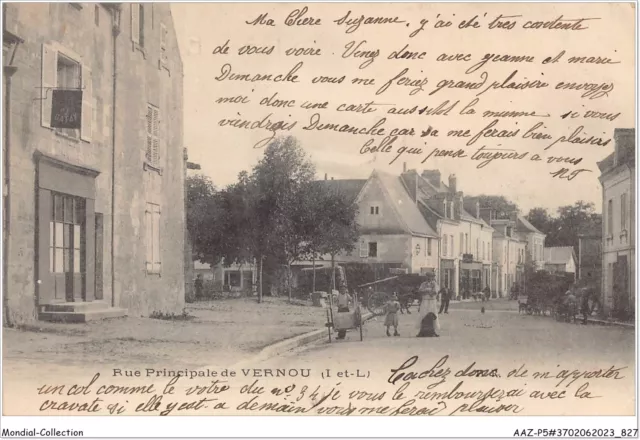 Ma Chere Suzanne, j'ai été très contente
de vous voire. Venez donc avec jeanne et marie
Dimanche vous me feriez grand plaisire envoyez
moi donc une carte aussitot la mienne si vous
viendrais Dimanche car sa me ferais bien plaisirs
Celle qui pense toujours a vous
M J
Rue Principale de VERNOU (I-et-L.)
Cachez donc de m'apporter
un col comme le votre du n° 34 je vous le rembourserai avec la
cravate si elle y est a demain vous me ferai plaisir
Mondial-Collection
AAZ-P5#3702062023_827